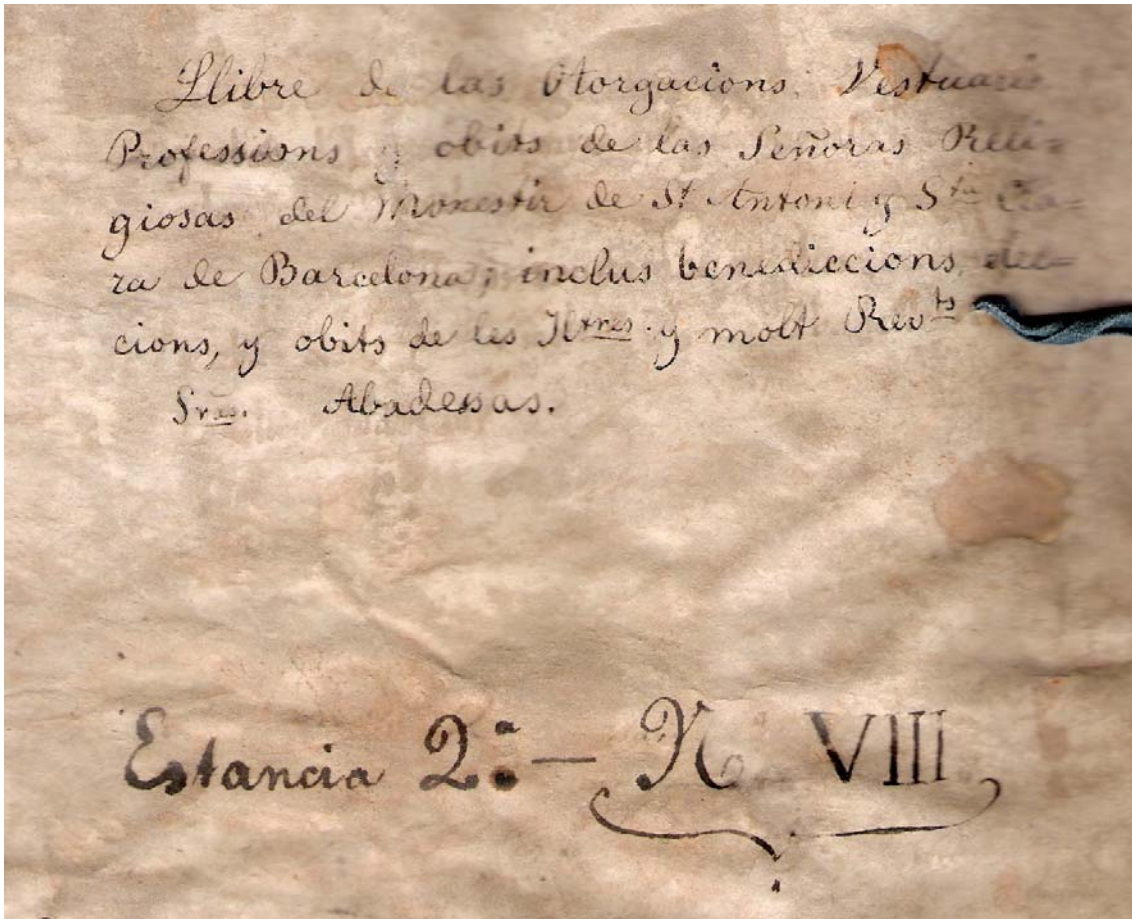 Llibre de las Otorgacions, Vestuaris
Professions y obits de las Señoras Reli=
giosas del Monestir de St Antoni y Sta Cla=
ra de Barcelona, inclus benediccions, elec=
cions, y obits de les Iltres. y molt Revts
Sras. Abadessas.
Estancia 2ª — No VIII